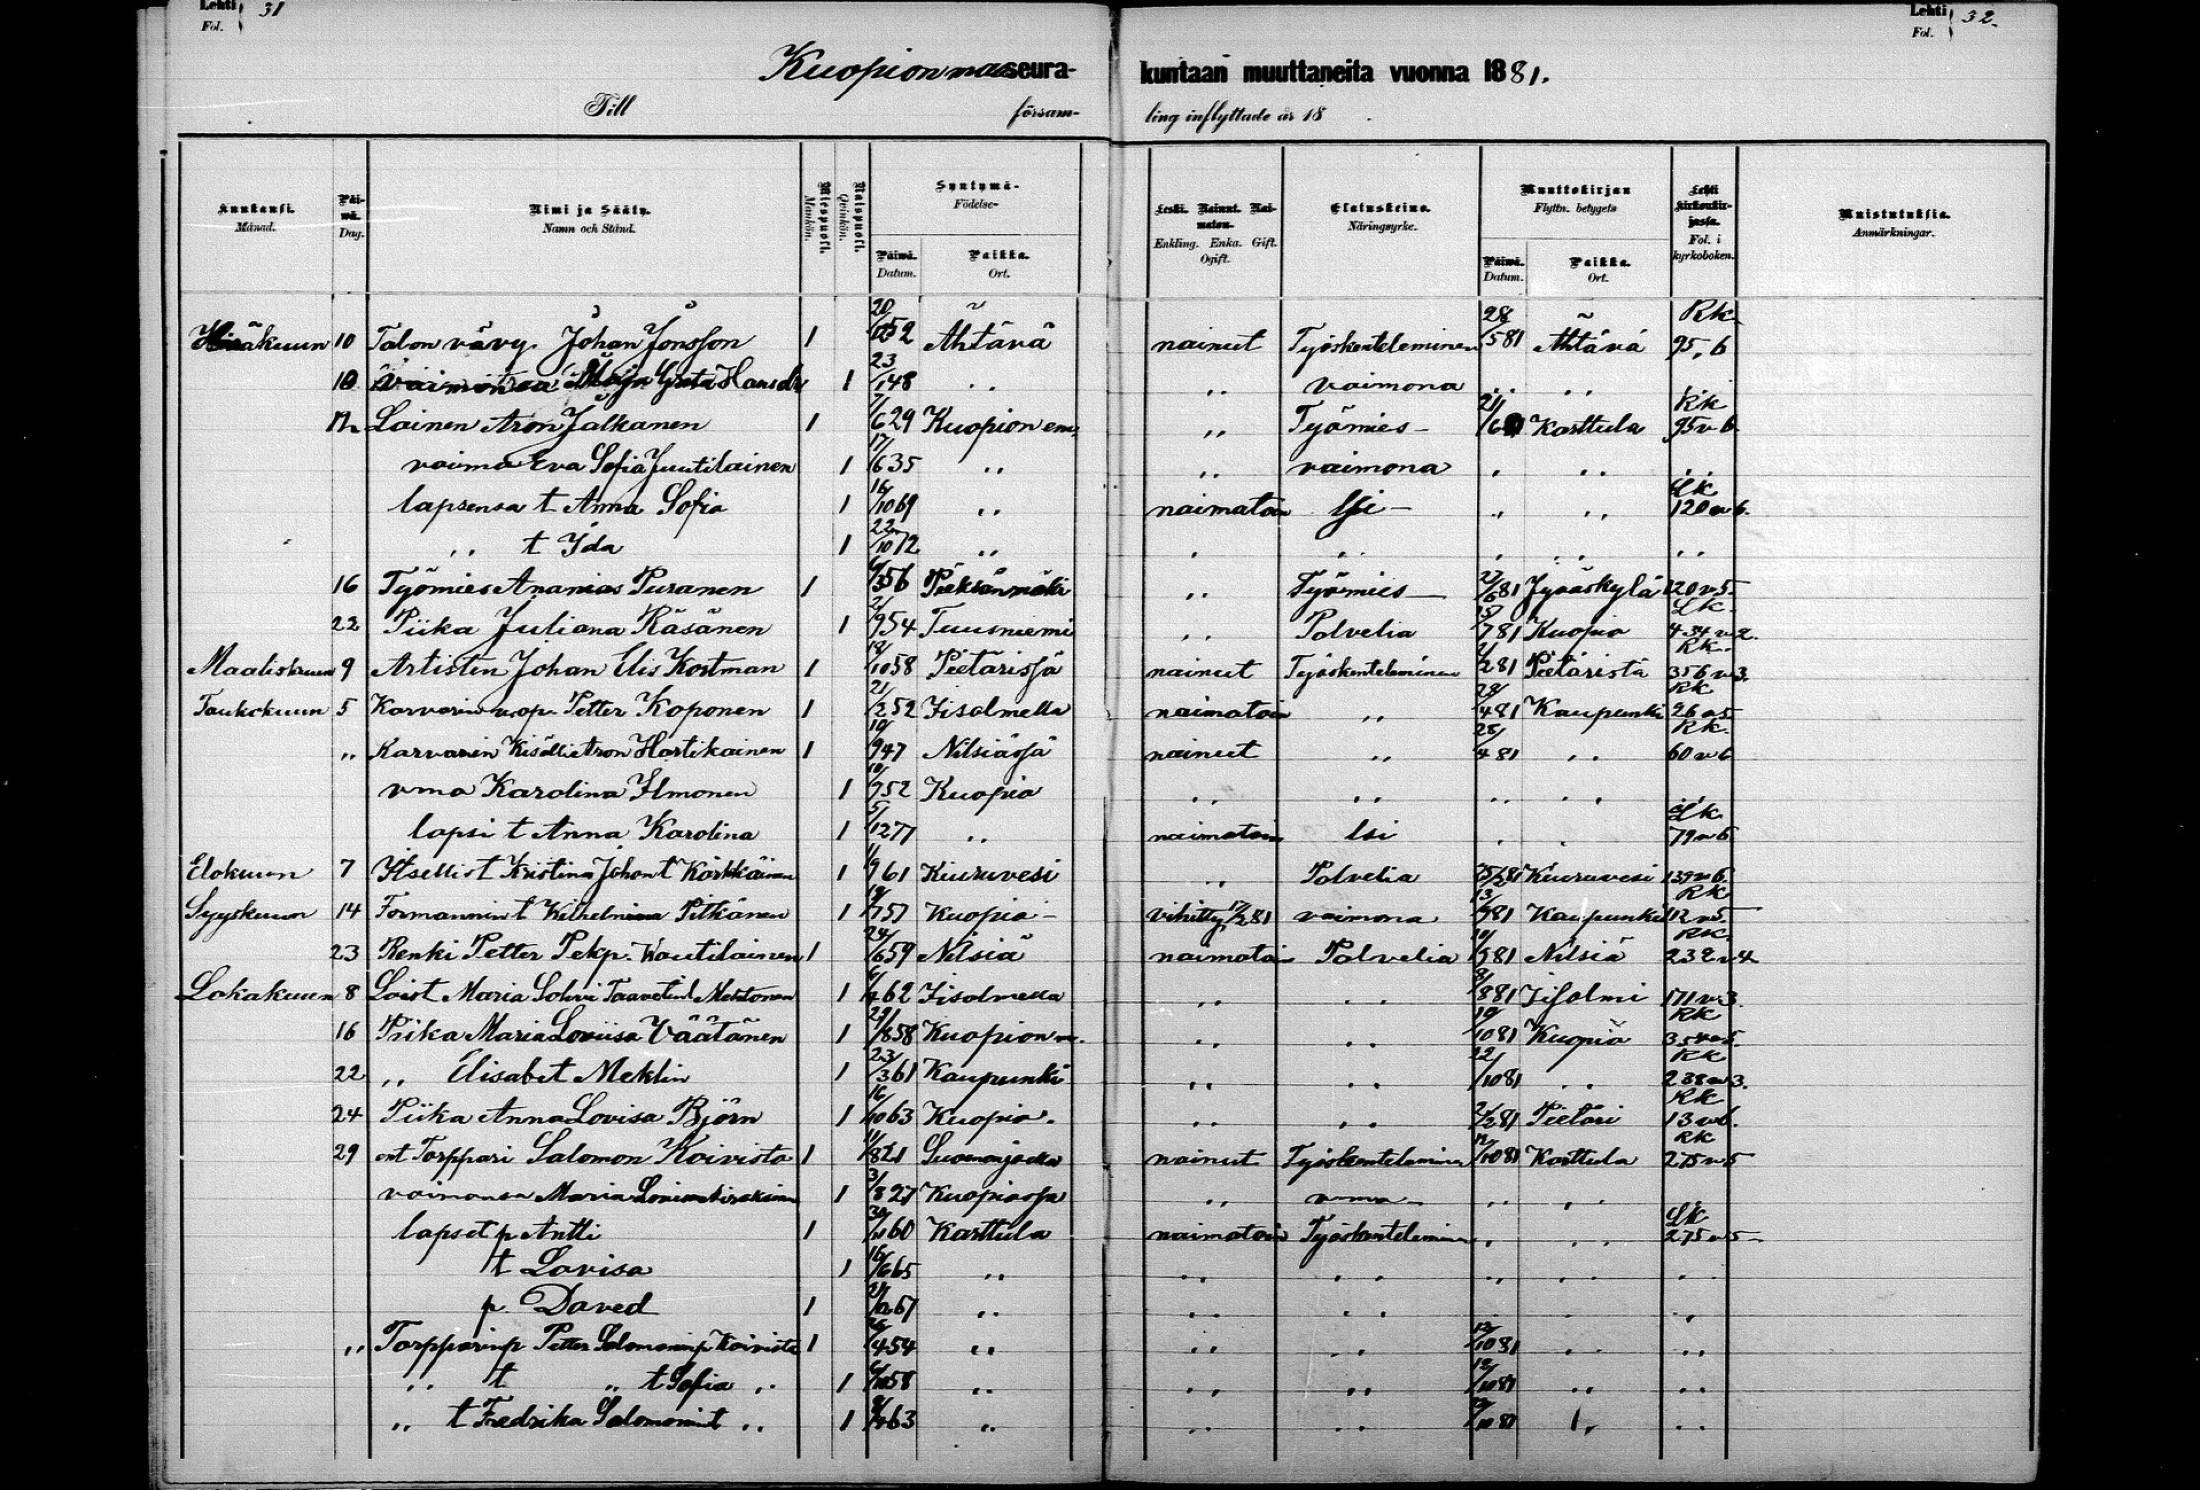 Lehti Fol. 31
Lehti Fol. 32.
Kuopion maaseura- kuntaan muuttaneita vuonna 1881.
Till försam- ling inflyttade år 18 .
Kuukausi. Månad. Päiwä. Dag. Nimi ja Sääty. Namn och Stånd. Miespuoli. Mankön. Naispuoli. Qvinkön. Syntymä- Födelse- Päiwä. Datum. Paikka. Ort. Leski. Nainut. Naimaton. Enkling. Enka. Gift. Ogift. Elatuskeino. Näringsyrke. Muuttokirjan Flyttn. betygets Päiwä. Datum. Paikka. Ort. Lehti kirkonkirjassa. Fol. i kyrkoboken. Muistutuksia. Anmärkningar.
10 Talon vävy Johan Jonsson 1 52 Ahtävä nainut Työskenteleminen 28/5 81 Ahtävä Rk 95, 6
10 vaimonsa Maja Greta Hansdr 1 23/1 48 ,, ,, vaimona ,, ,,
Loinen Aron Jalkanen 1 7/6 29 Kuopion ,, Työmies - 21/6 Karttula Rk 95 v 6
vaimo Eva Sofia Juutilainen 1 17/6 35 ,, ,, vaimona ,, ,, ,,
lapsensa t Anna Sofia 1 16/10 69 ,, naimatoin lsi - ,, ,, Lk 120 v 6.
,, t Ida 1 22/10 72 ,, ,, ,, ,, ,, ,,
16 Työmies Ananias Puranen 1 56 Pieksänmäki ,, Työmies - 27/6 81 Jyväskylä 120 v 5
22 Piika Juliana Räsänen 1 2/9 54 Tuusniemi ,, Palvelia 15/7 81 Kuopio Lk 434 v 2.
Maaliskuun 9 Artisten Johan Elis Kortman 1 18/10 58 Pietarissa nainut Työskenteleminen 2/2 81 Pietarista Rk 356 v 3.
Toukokuun 5 Karvarin Petter Koponen 1 21/2 52 Iisalmella naimatoin ,, 28/4 81 Kaupunki Rk 26 v 5
,, Karvarin Kisälli Aron Hartikainen 1 19/9 47 Nilsiässä nainut ,, 28/4 81 ,, Rk 60 v 6
vmo Karolina Ilmonen 1 10/9 52 Kuopio ,, ,, ,, ,, ,,
lapsi t Anna Karolina 1 5/12 77 ,, naimatoin lsi ,, ,, Lk 79 v 6
Elokuun 7 Itsellist Kristina Johan t Kärkkäinen 1 61 Kiuruvesi ,, Palvelia 81 Kiuruvesi 139 v 6.
Syyskuun 14 Formannin t Vilhelmina Pitkänen 1 57 Kuopio - vihitty 81 vaimona 13/9 81 Kaupunki Rk 112 v 5.
23 Renki Petter Pekp. Vautilainen 1 24/6 59 Nilsiä naimatoi- Palvelia 81 Nilsiä Rk 232 v 4
Lokakuun 8 Loist Maria Sohvi Taavetint Mehtonen 1 62 Iisalmella ,, ,, 8/8 81 Iisalmi 171 v 3.
16 Piika Maria Loviisa Väätänen 1 29/8 58 Kuopion ,, ,, 19/10 81 Kuopio Rk
22 ,, Elisabet Meklin 1 23/3 61 Kaupunki ,, ,, 22/10 81 ,, Rk 238 v 3.
24 Piika Anna Lovisa Björn 1 16/10 63 Kuopio. ,, ,, 2/2 81 Pietari Rk 13 v 6.
29 ent Torppari Salomon Koivisto 1 11/8 21 nainut Työskenteleminen 12/10 81 Karttula Rk 275 v 5
vaimonsa Maria 1 3/8 27 Kuopiossa ,, vmo - ,, ,,
lapset p Antti 1 60 Karttula naimatoin Työskenteleminen ,, ,, Lk 275 v 5
t Lovisa 1 16/6 65 ,, ,, ,, ,, ,, ,,
p. Daved 1 67 ,, ,, ,, ,,
,, Torpparinp Petter Salomoninp Koivisto 1 4 54 ,, ,, ,, 12/10 81 ,, ,,
,, t ,, t Sofia ,, 1 58 ,, ,, ,, 12/10 81 ,, ,,
,, t Fredrika Salomonint ,, 1 63 ,, ,, ,, 12/10 81 ,, ,,